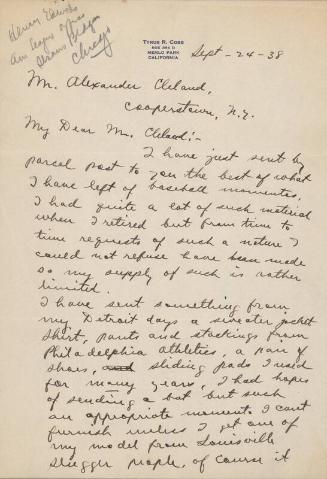 Henry Edwards
Am League
Chicago
TYRUS R. COBB
MENLO PARK
CALIFORNIA
Sept - 24 - 38
Mr. Alexander Cleland,
Cooperstown, N.Y.
My Dear Mr. Cleland:-
I have just sent by
parcel post to you the best of what
I have left of baseball momentos,
I had quite a lot of such material
when I retired but from time to
time requests of such a nature I
could not refuse have been made
so my supply of such is rather
limited.
I have sent something from
my Detroit days a sweater jacket
shirt, pants and stockings from
Philadelphia athletics, a pair of
shoes, and sliding pads I used
for many years, I had hopes
of sending a bat but such
an appropriate momento I cant
furnish unless I get one of
my model from Louisville
Slugger people, of course it